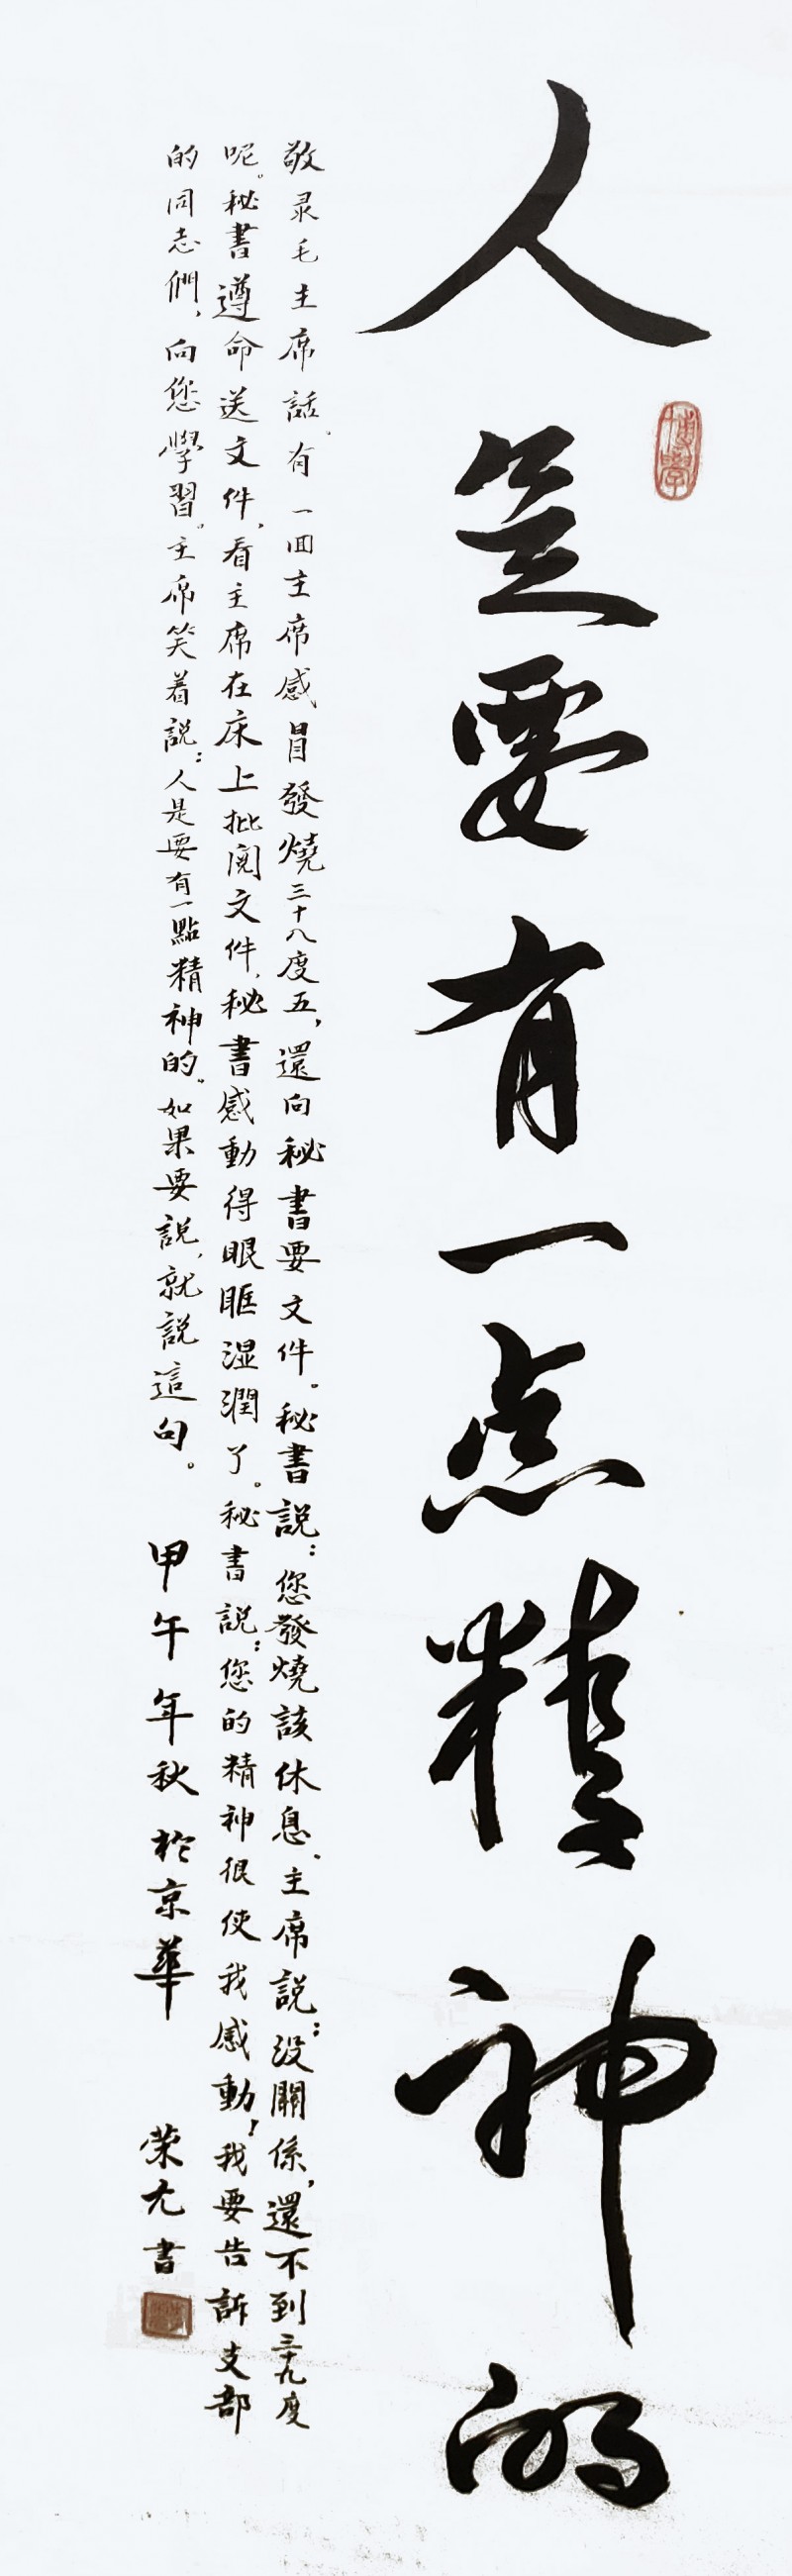 人是要有一点精神的
博學
敬录毛主席話。有一回主席感冒發燒三十八度五，還向秘書要文件。秘書説：您發燒該休息。主席説：没關係，還不到三十九度
呢。秘書遵命送文件，看主席在床上批阅文件，秘書感動得眼眶湿潤了。秘書説：您的精神很使我感動，我要告訴支部
的同志們，向您學習。主席笑着説：人是要有一點精神的。如果要説，就説這句。 甲午年秋於京華 荣尤書